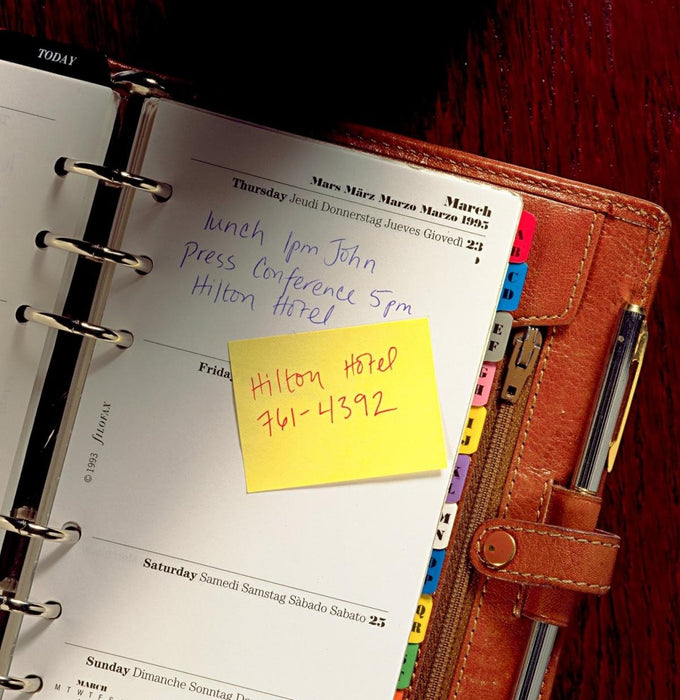 TODAY
March
Mars März Marzo Marzo 1995
Thursday Jeudi Donnerstag Jueves Giovedì 23
lunch 1pm John
Press Conference 5pm
Hilton Hotel
Hilton Hotel
761-4392
© 1993 filofax
Saturday Samedi Samstag Sàbado Sabato 25
Sunday Dimanche Sonntag
MARCH
M T W T F S
A
B
C
D
E
F
G
H
I
J
K
L
M
N
O
P
Q
R
S